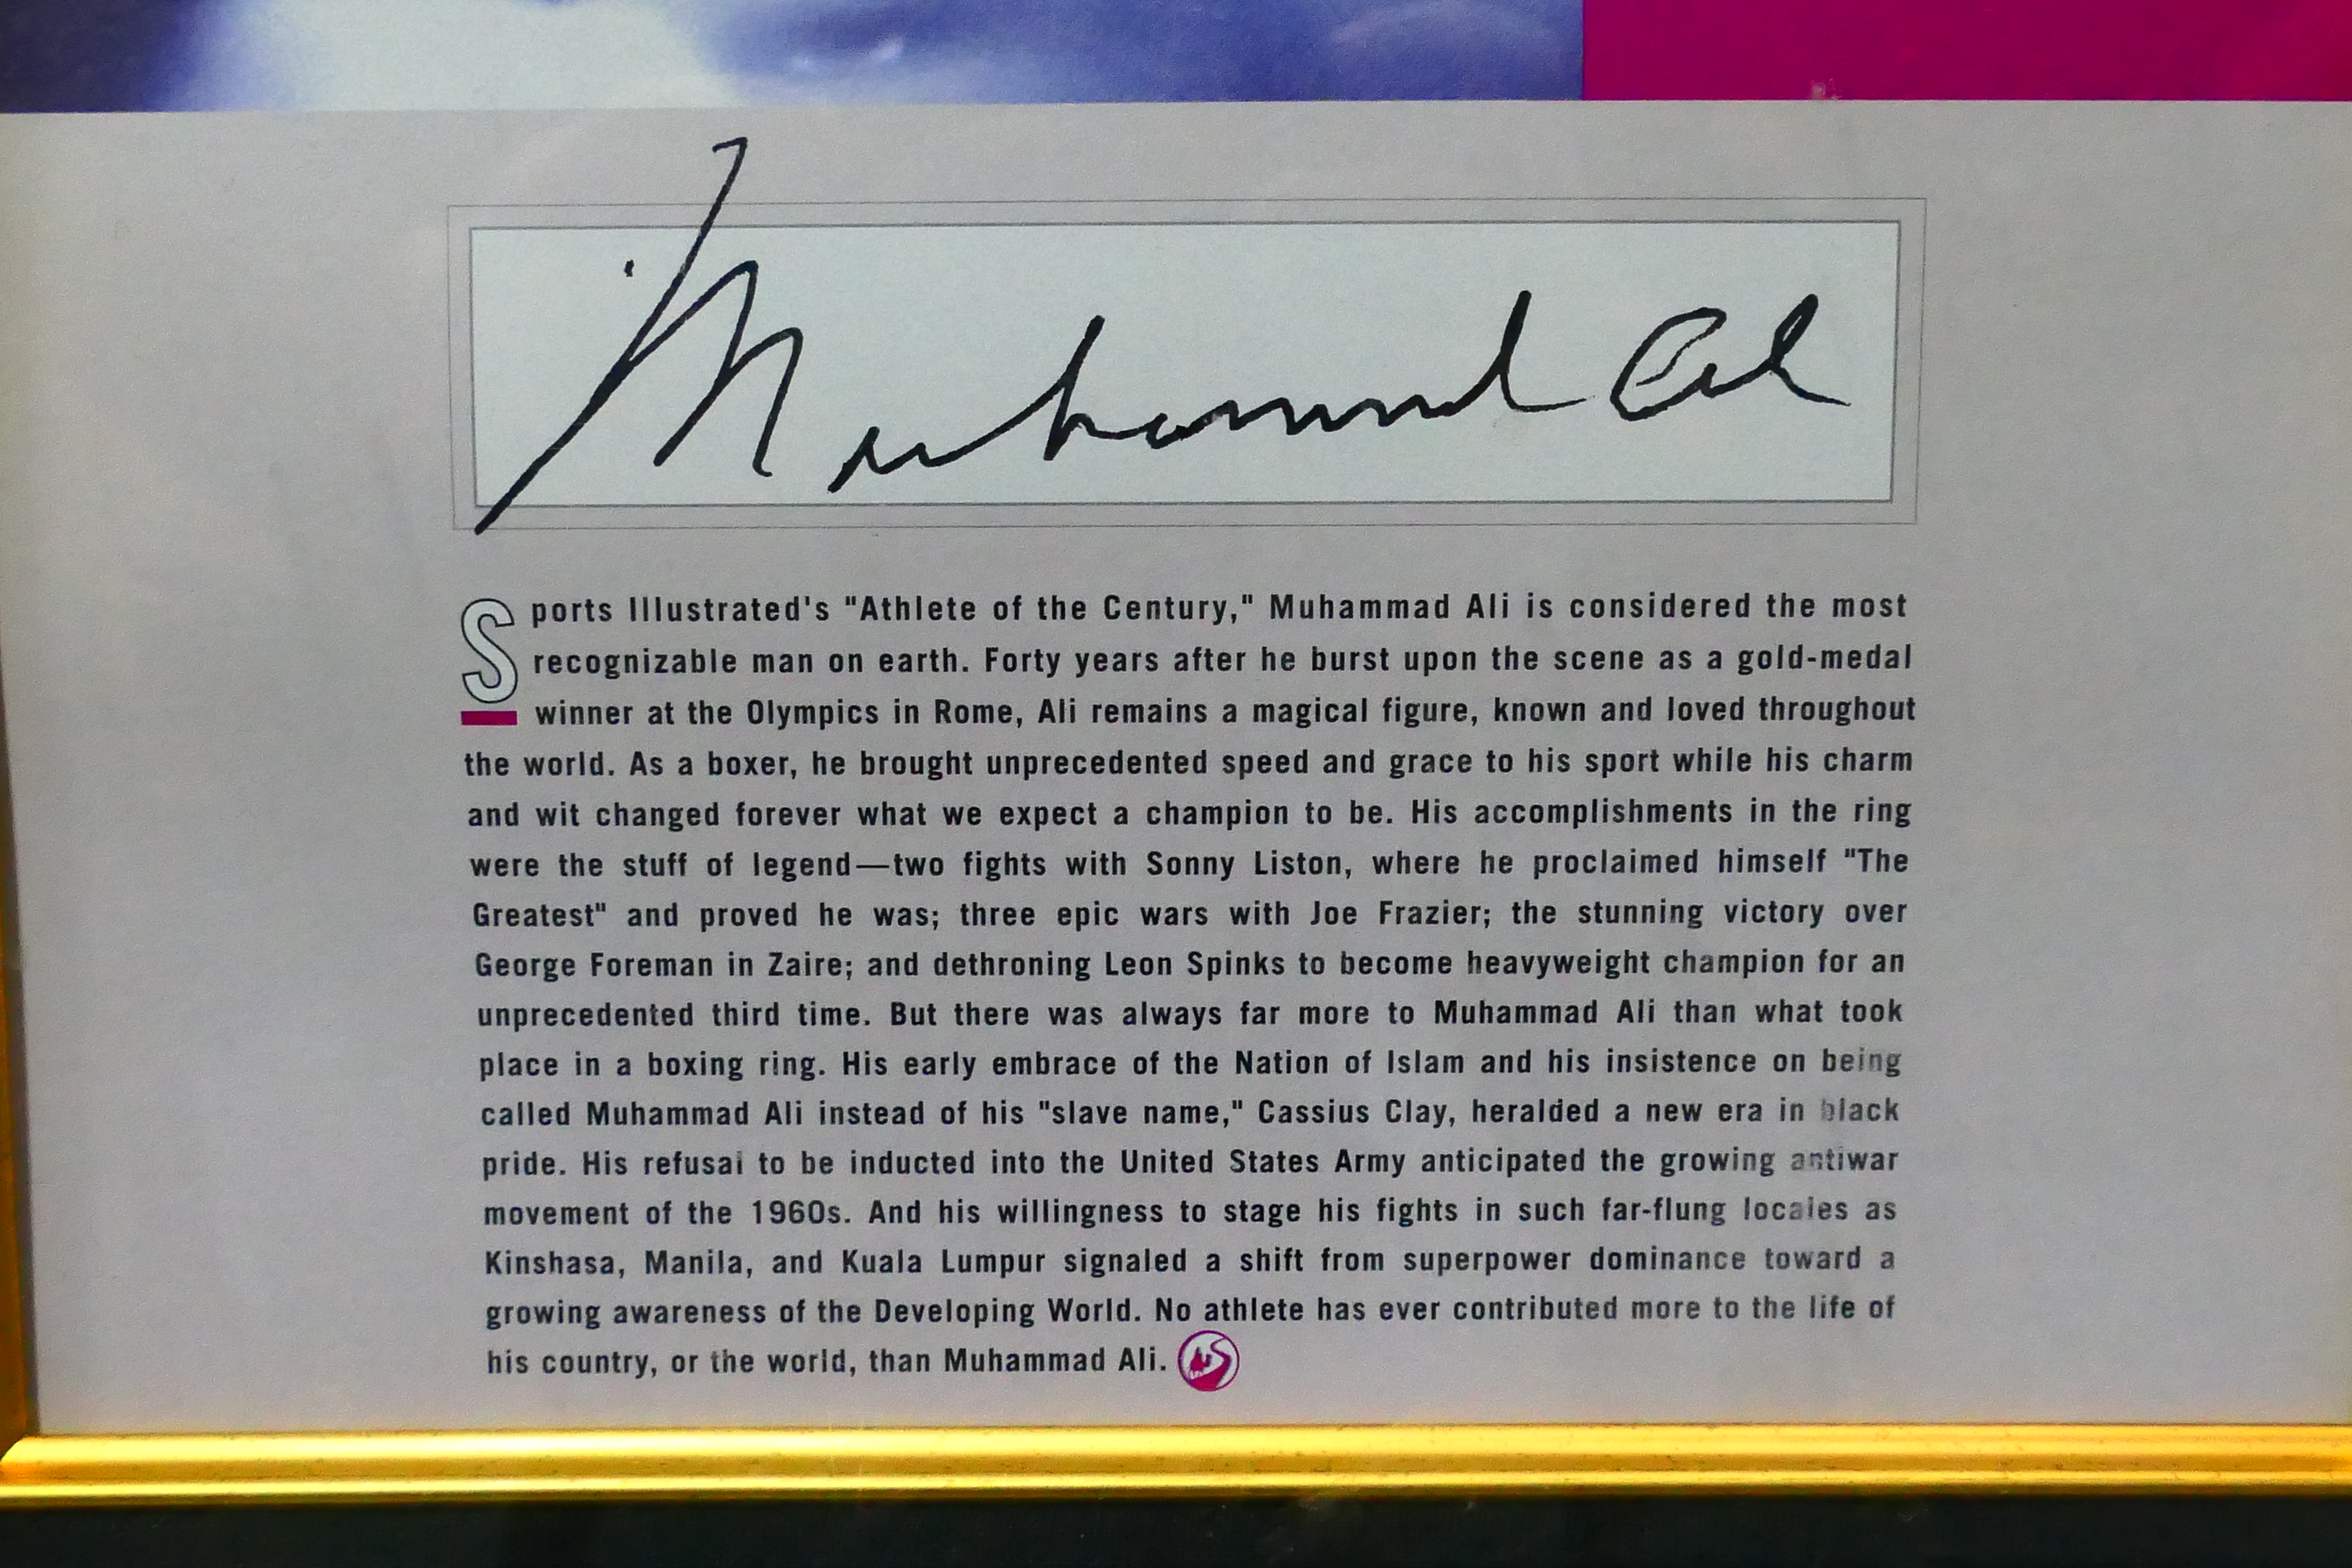 Muhammad Ali
Sports Illustrated's "Athlete of the Century," Muhammad Ali is considered the most
recognizable man on earth. Forty years after he burst upon the scene as a gold-medal
winner at the Olympics in Rome, Ali remains a magical figure, known and loved throughout
the world. As a boxer, he brought unprecedented speed and grace to his sport while his charm
and wit changed forever what we expect a champion to be. His accomplishments in the ring
were the stuff of legend—two fights with Sonny Liston, where he proclaimed himself "The
Greatest" and proved he was; three epic wars with Joe Frazier; the stunning victory over
George Foreman in Zaire; and dethroning Leon Spinks to become heavyweight champion for an
unprecedented third time. But there was always far more to Muhammad Ali than what took
place in a boxing ring. His early embrace of the Nation of Islam and his insistence on being
called Muhammad Ali instead of his "slave name," Cassius Clay, heralded a new era in black
pride. His refusal to be inducted into the United States Army anticipated the growing antiwar
movement of the 1960s. And his willingness to stage his fights in such far-flung locales as
Kinshasa, Manila, and Kuala Lumpur signaled a shift from superpower dominance toward a
growing awareness of the Developing World. No athlete has ever contributed more to the life of
his country, or the world, than Muhammad Ali.